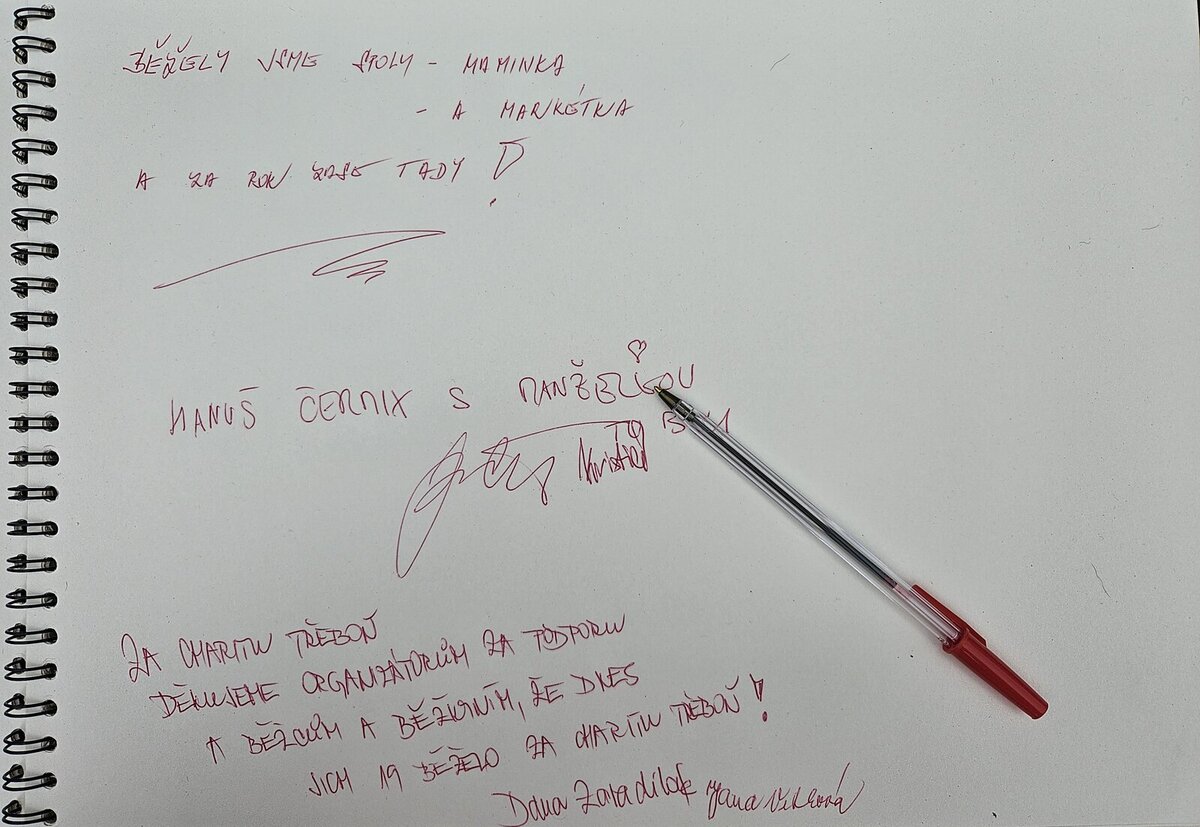 BĚŽELY JSME SPOLU - MAMINKA
- A MARKÉTKA
A ZA ROK ZASE TADY!
HANUŠ ČERMIX S MANŽELKOU
ZA CHARITU TŘEBOŇ
DĚKUJEME ORGANIZÁTORŮM ZA PODPORU
A BĚŽCŮM A BĚŽKYNÍM, ŽE DNES
JICH 19 BĚŽELO ZA CHARITU TŘEBOŇ!
Dana Jana